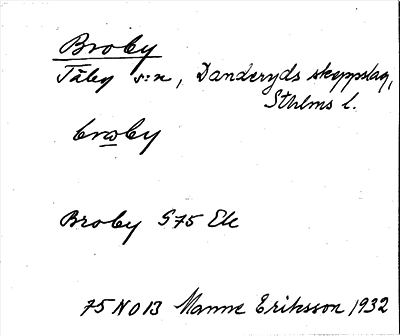 Broby
Täby s:n, Danderyds skeppslag,
Sthlms l.
broby
Broby S75 Ek
75 NO 13 Manne Eriksson 1932